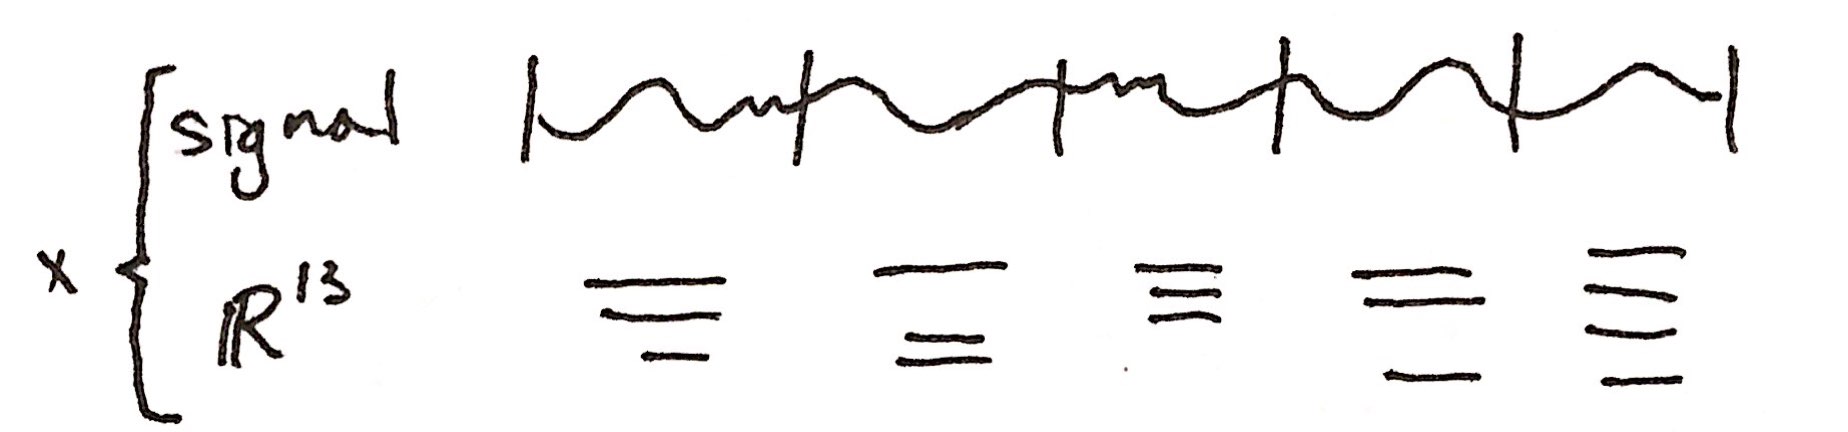 signal
x
ℝ¹³